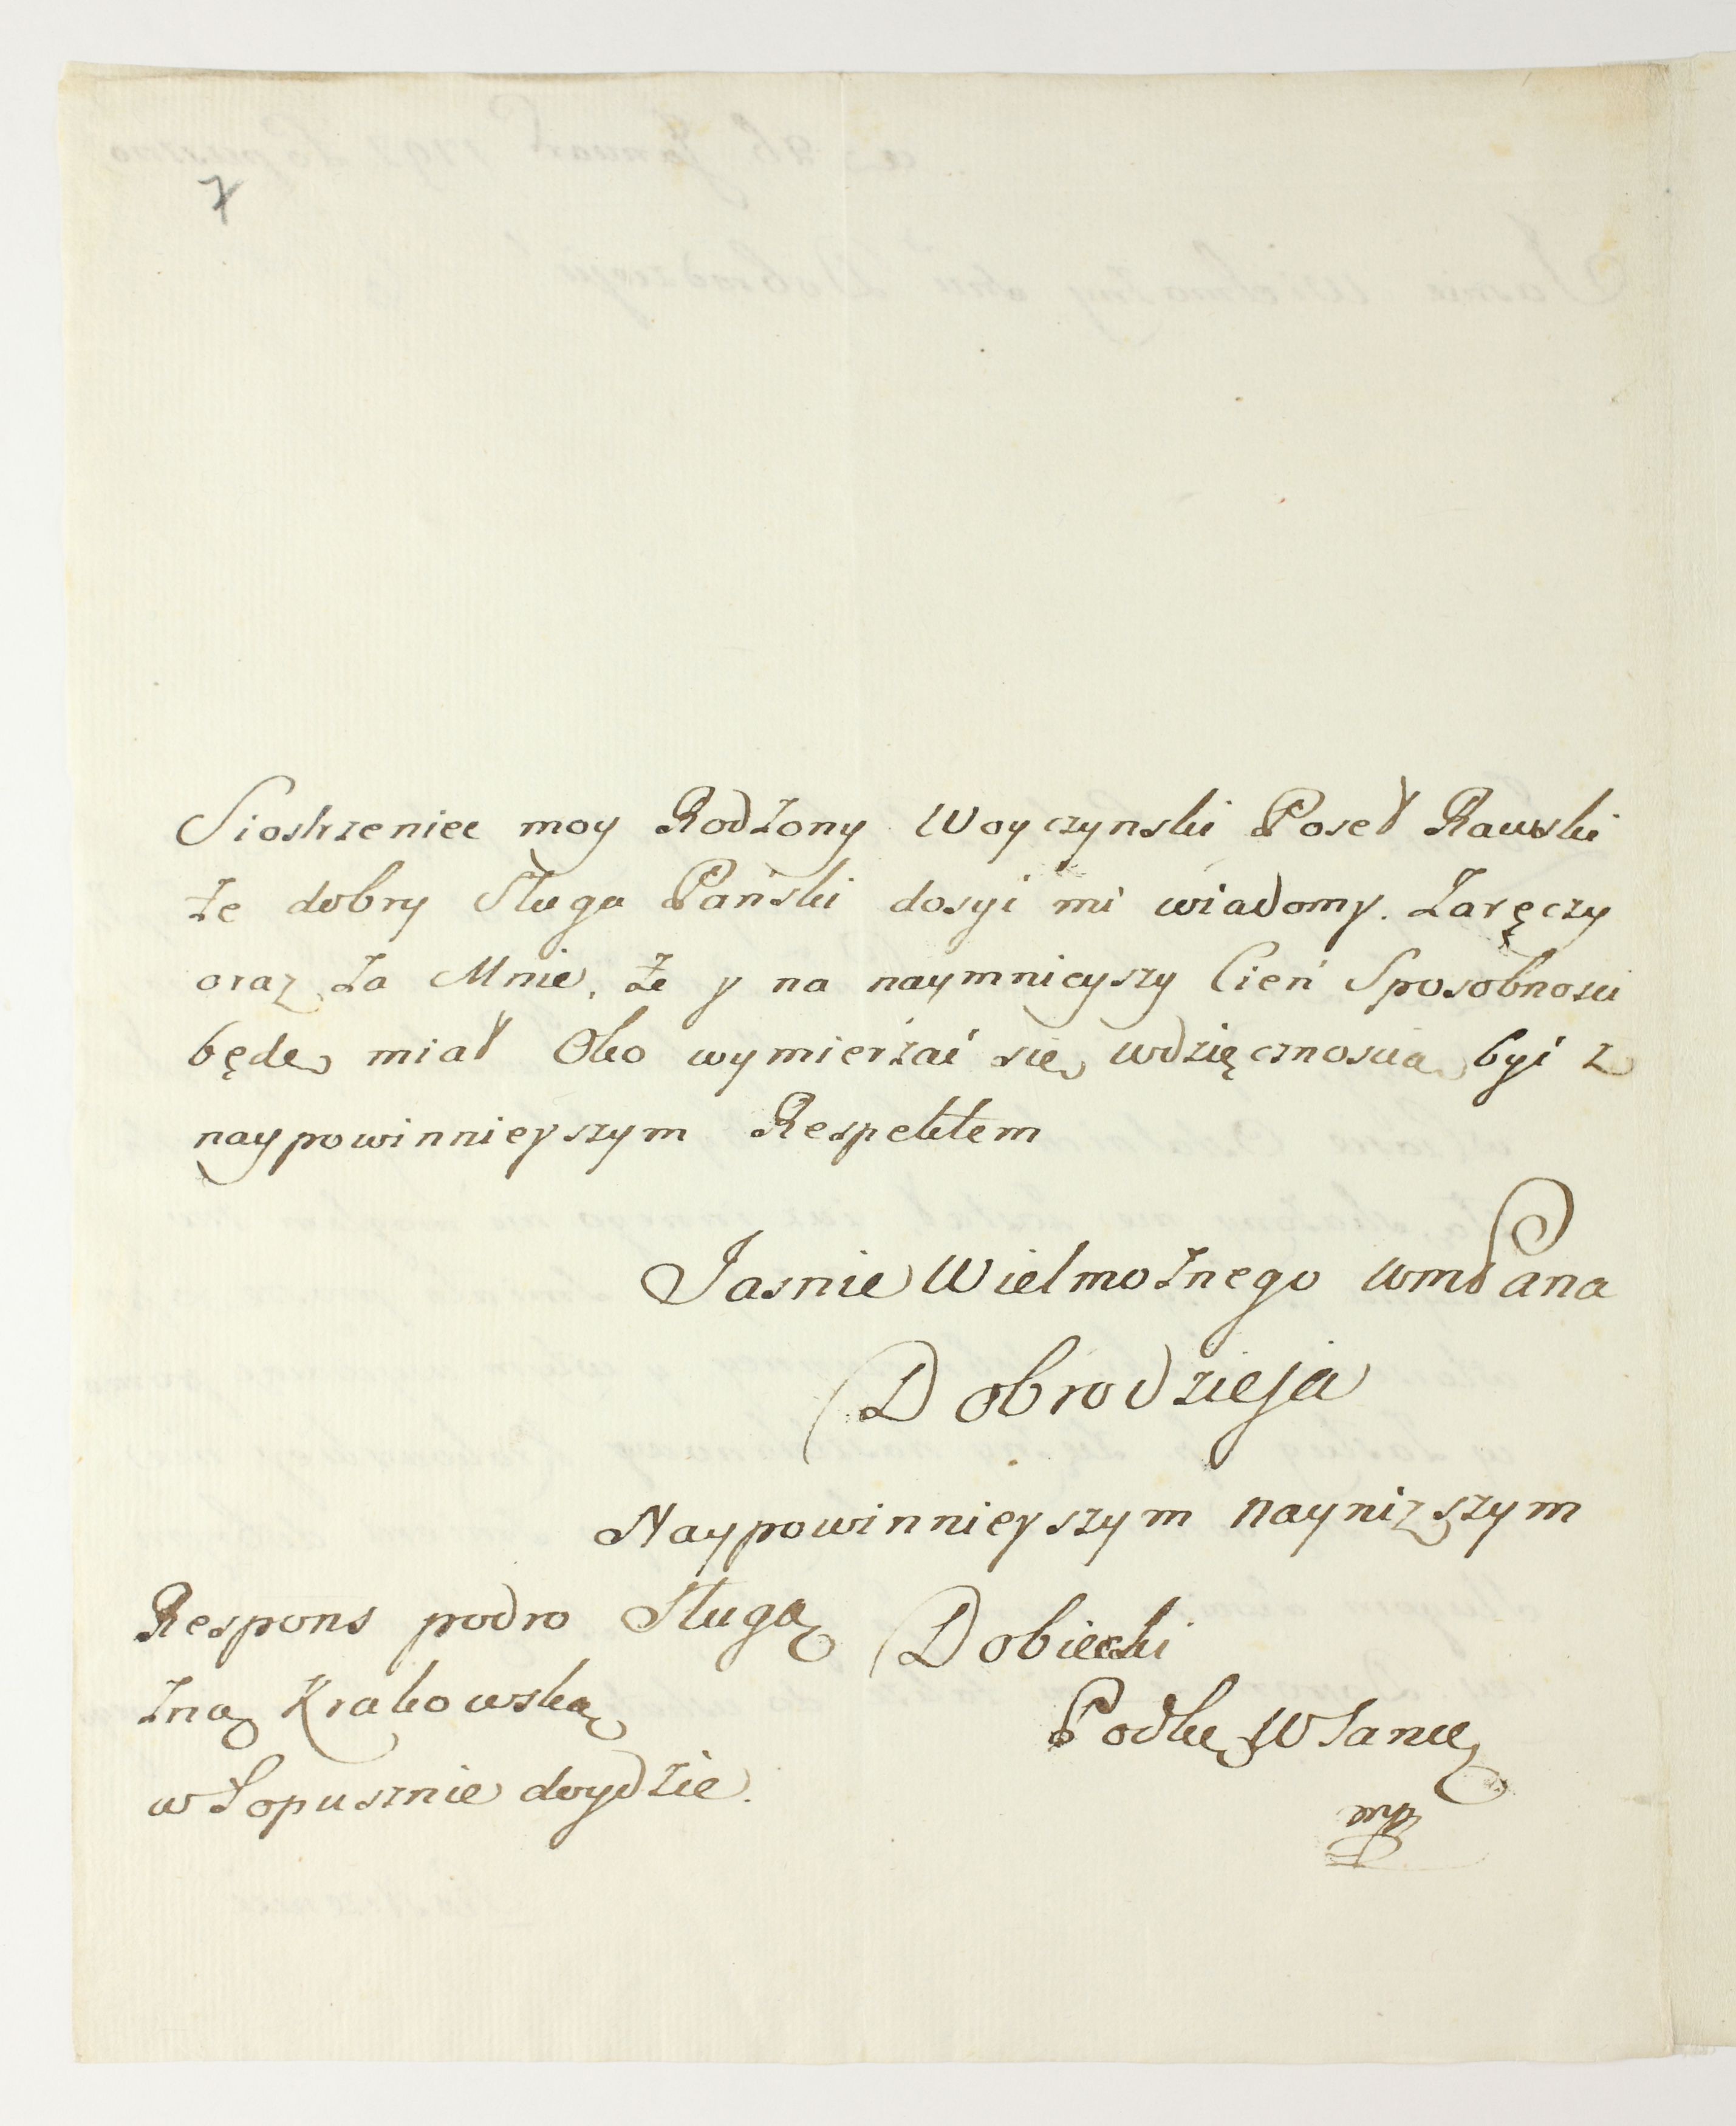 7
Siostrzeniec moy Rodzony Woyczynski Poseł Rawski
że dobry Sługa Pański dosyć mi wiadomy. Zaręczy
oraz za Mnie, że y na naymnieyszy Cień Sposobnosci
będę miał Oko wymierzać się wdzięcznoscią być z
naypowinnieyszym Respektem
Jasnie Wielmożnego WmPana
Dobrodzieja
Naypowinnieyszym nayniższym
Respons podro Sługą Dobiecki
żną Krakowską
w Łopusznie doydzie.
mp